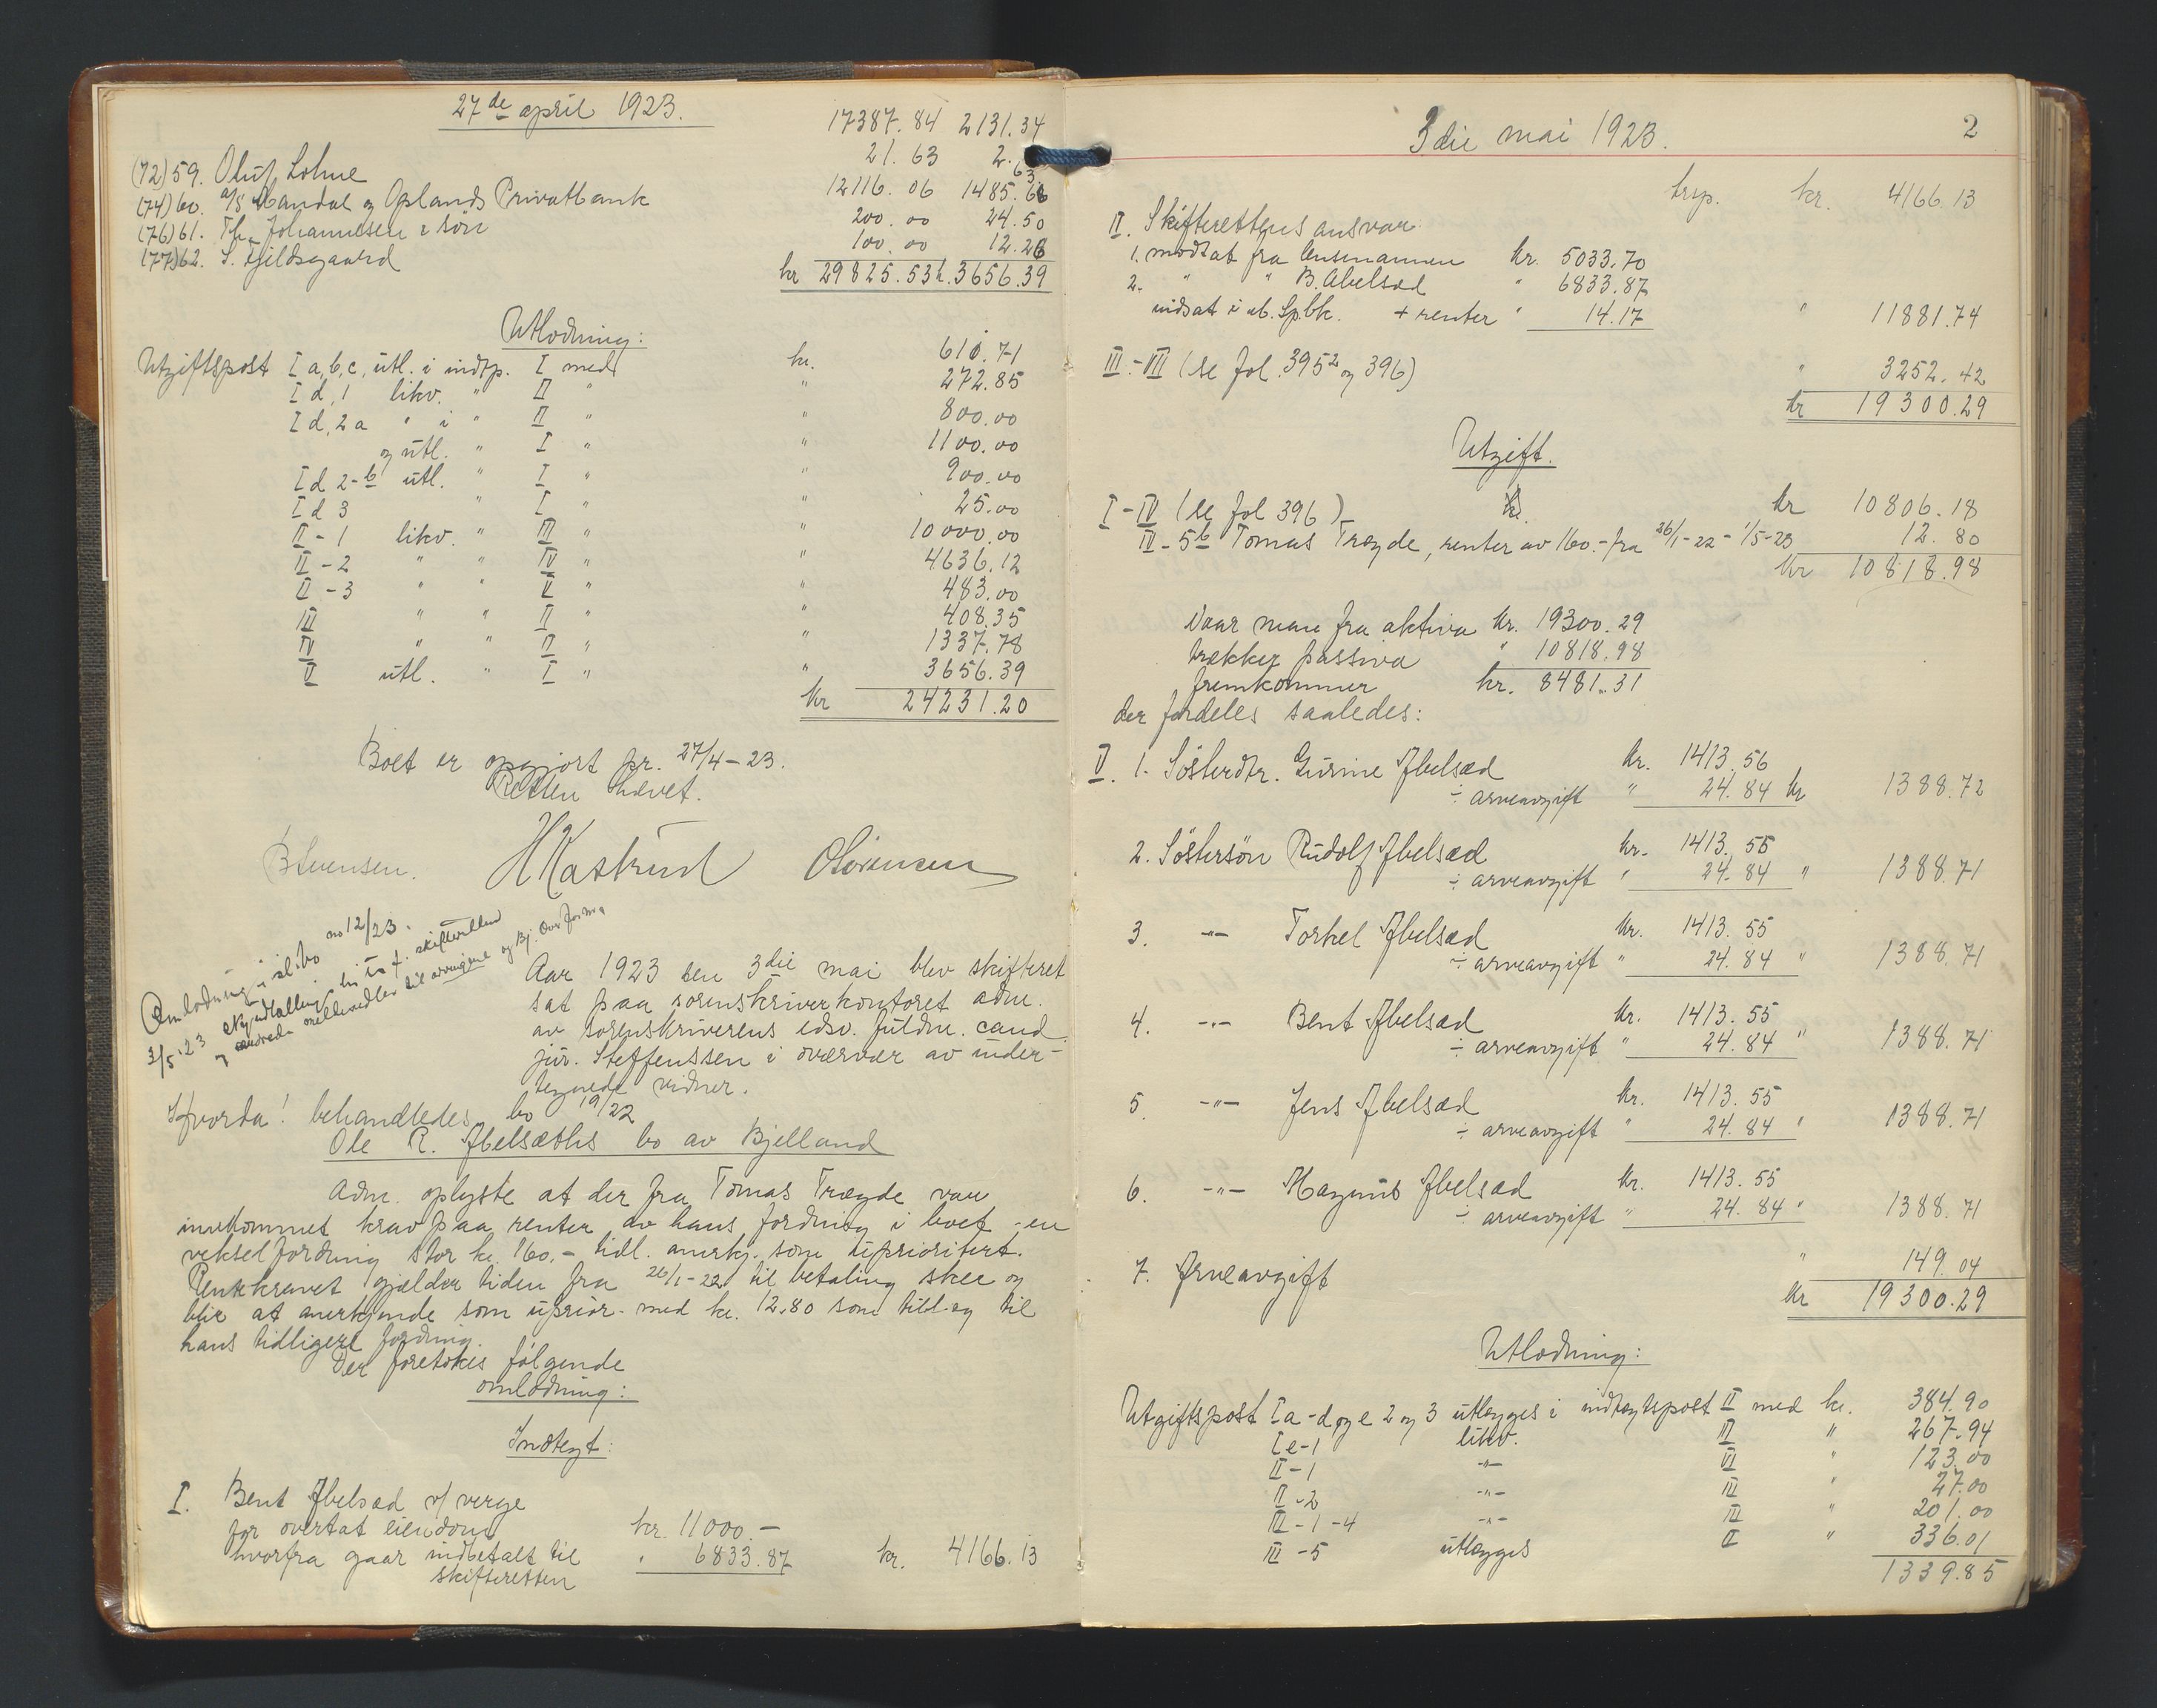 27de april 1923.
17387.84 2131.34
(72) 59. Oluf Lohne 21.63 2.63
(74) 60. A/S Mandal og Oplands Privatbank 12116.06 1485.66
(76) 61. Th. Johannesen & sön 200.00 24.50
(77) 62. S. Fjildsgaard 100.00 12.26
kr 29825.53 k. 3656.39
Utlodning:
Utgiftspost I a, b, c, utl. i indtp. I med kr. 610.71
I d, 1 likv. " II " " 272.85
I d, 2 a " i " II " " 800.00
og utl. " I " " 1100.00
I d 2-b utl. " I " " 900.00
I d 3 " I " " 25.00
II - 1 likv. " III " " 10000.00
II - 2 " " IV " " 4636.12
II - 3 " " II " " 483.00
III " " II " " 408.35
IV " " II " " 1337.78
V utl. " I " " 3656.39
kr 24231.20
Boet er opgjort pr. 27/4-23.
Retten hævet.
B Evensen. H Kastrud O Sörensen
Omlodning i sl. bo no 12/23.
3/5.23
og
Aar 1923 den 3die mai blev skifteret
sat paa sorenskriverkontoret adm.
av sorenskriverens edsv. fuldm. cand.
jur. Steffenssen i overvær av under-
tegnede vidner.
Hvorda! behandledes bo 19/22
Ole R. Ibelsæths bo av Bjelland
Adm. oplyste at der fra Tomas Trægde var
indkommet krav paa renter av hans fordring i boet - en
vekselfordring stor kr. 160.- tidl. anerkj. som uprioritert.
Rentekravet gjælder tiden fra 26/1-22 til betaling skee og
blir at anerkjende som uprior. med kr. 12.80 som tillæg til
hans tidligere fordring.
Der foretokes følgende
omlodning:
Indtegt:
I. Bent Ibelsæd v/ verge
for overtat eiendom kr. 11000.-
hvorfra gaar indbetalt til " 6833.87 kr. 4166.13
skifteretten
3die mai 1923. 2
trsp. kr. 4166.13
II. Skifterettens ansvar
1. modtat fra lensmannen kr. 5033.70
2. " " B. Abelsæd " 6833.87
indsat i ub. Spbk. + renter " 14.17 " 11881.74
III - VII (se fol. 395² og 396) " 3252.42
kr 19300.29
Utgift.
I - IV (se fol 396) kr 10806.18
IV - 5b Tomas Trægde, renter av 160.- fra 26/1-22 - 1/5-23 12.80
kr 10818.98
Naar man fra aktiva kr. 19300.29
trækker passiva " 10818.98
fremkommer kr. 8481.31
der fordeles saaledes:
V. 1. Søsterdtr. Gurine Ibelsæd kr. 1413.56
÷ arveavgift " 24.84 kr 1388.72
2. Søstersön Rudolf Ibelsæd kr. 1413.55
÷ arveavgift " 24.84 " 1388.71
3. -"- Torkel Ibelsæd kr. 1413.55
÷ arveavgift " 24.84 " 1388.71
4. -"- Bent Ibelsæd kr. 1413.55
÷ arveavgift " 24.84 " 1388.71
5. -"- Jens Ibelsæd kr. 1413.55
÷ arveavgift " 24.84 " 1388.71
6. -"- Magnus Ibelsæd kr. 1413.55
÷ arveavgift " 24.84 " 1388.71
7. Arveavgift " 149.04
kr 19300.29
Utlodning:
Utgiftspost I a - d og e 2 og 3 utlægges i indtægtspost II med kr. 384.90
I e-1 likv. III " 267.94
II - 1 -"- VI " 123.00
II - 2 -"- III 27.00
III - 1 - 4 -"- III " 201.00
III - 5 utlægges II " 336.01
1339.85